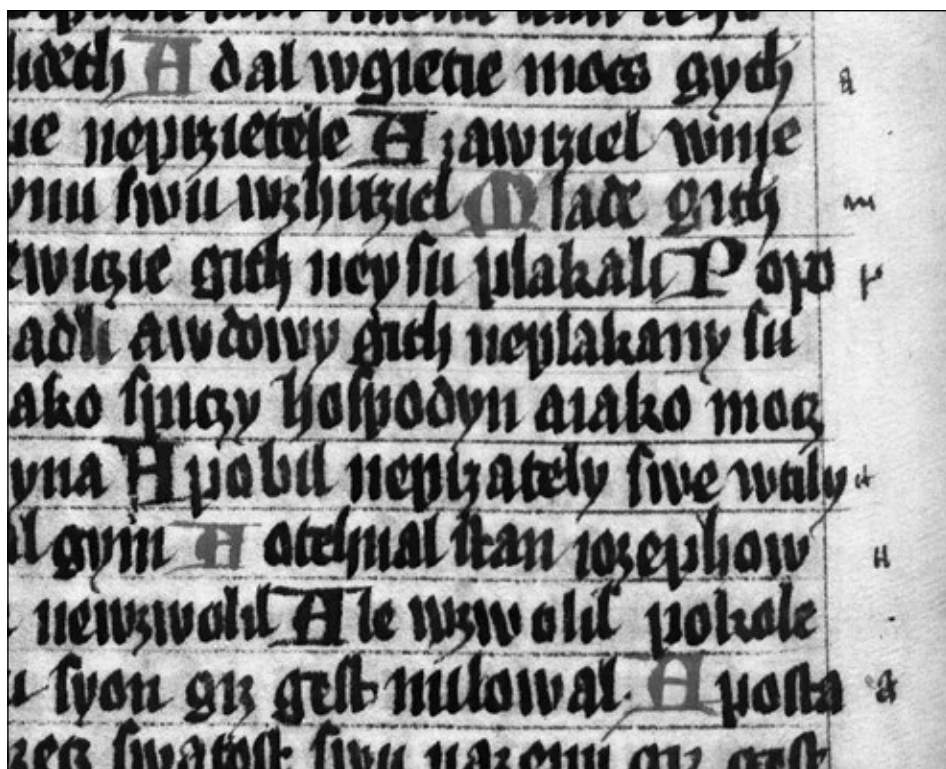 lidech A dal wgietie mocs gych
ie neprzietele A zawrziel winie
swu wzhrziel M lade gich
ewiczie gich ney su plakali P opo
adli awdowy gich neplakany su
ako spiczy hospodyn aiako mocz
yna A pobil neprzately swe wtily
al gym A otehnal stan iozephow
newzwolil A le wzwolil pokole
syon giz gest milowal A posta
swatost swu
a
m
p
a
a